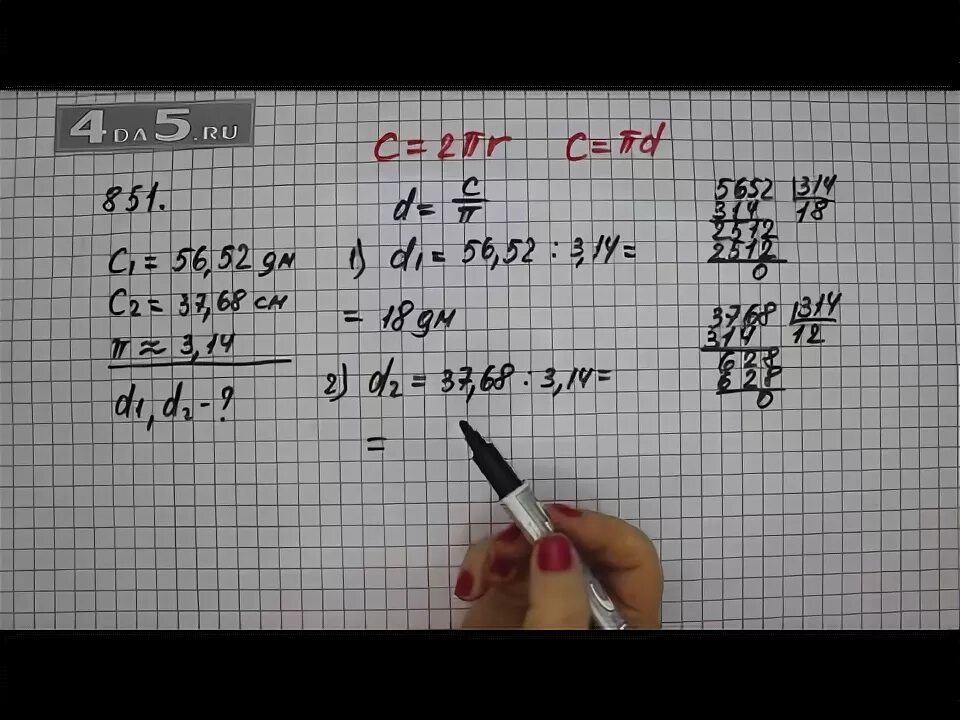 4DA5.RU
C = 2πr   C = πd
851.
d = C/π
C₁ = 56,52 дм
C₂ = 37,68 см
π ≈ 3,14
d₁, d₂ - ?
1) d₁ = 56,52 : 3,14 =
= 18 дм
2) d₂ = 37,68 : 3,14 =
=
5652 | 314
314 | 18
2512
2512
0
3768 | 314
314 | 12
628
628
0